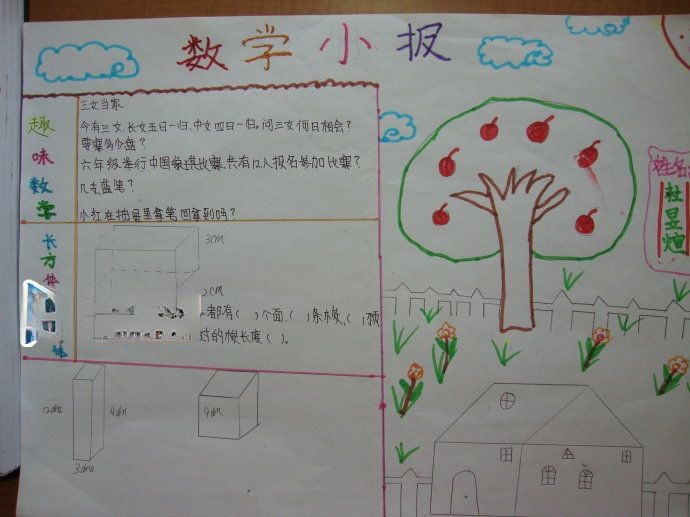 数学小报
趣味数学
三女当家
今有三女,长女五日一归,中女四日一归。问三女何日相会?
要赛多少盘?
六年级举行中国象棋比赛,共有12人报名参加比赛?
几支蓝笔?
小红在抽屉里拿笔回拿到吗?
长方体
体
3cm
2cm
都有( )个面,( )条棱,( )顶
对的棱长度( )。
12dm
4dm
3dm
9dm
姓名:
杜昱煊